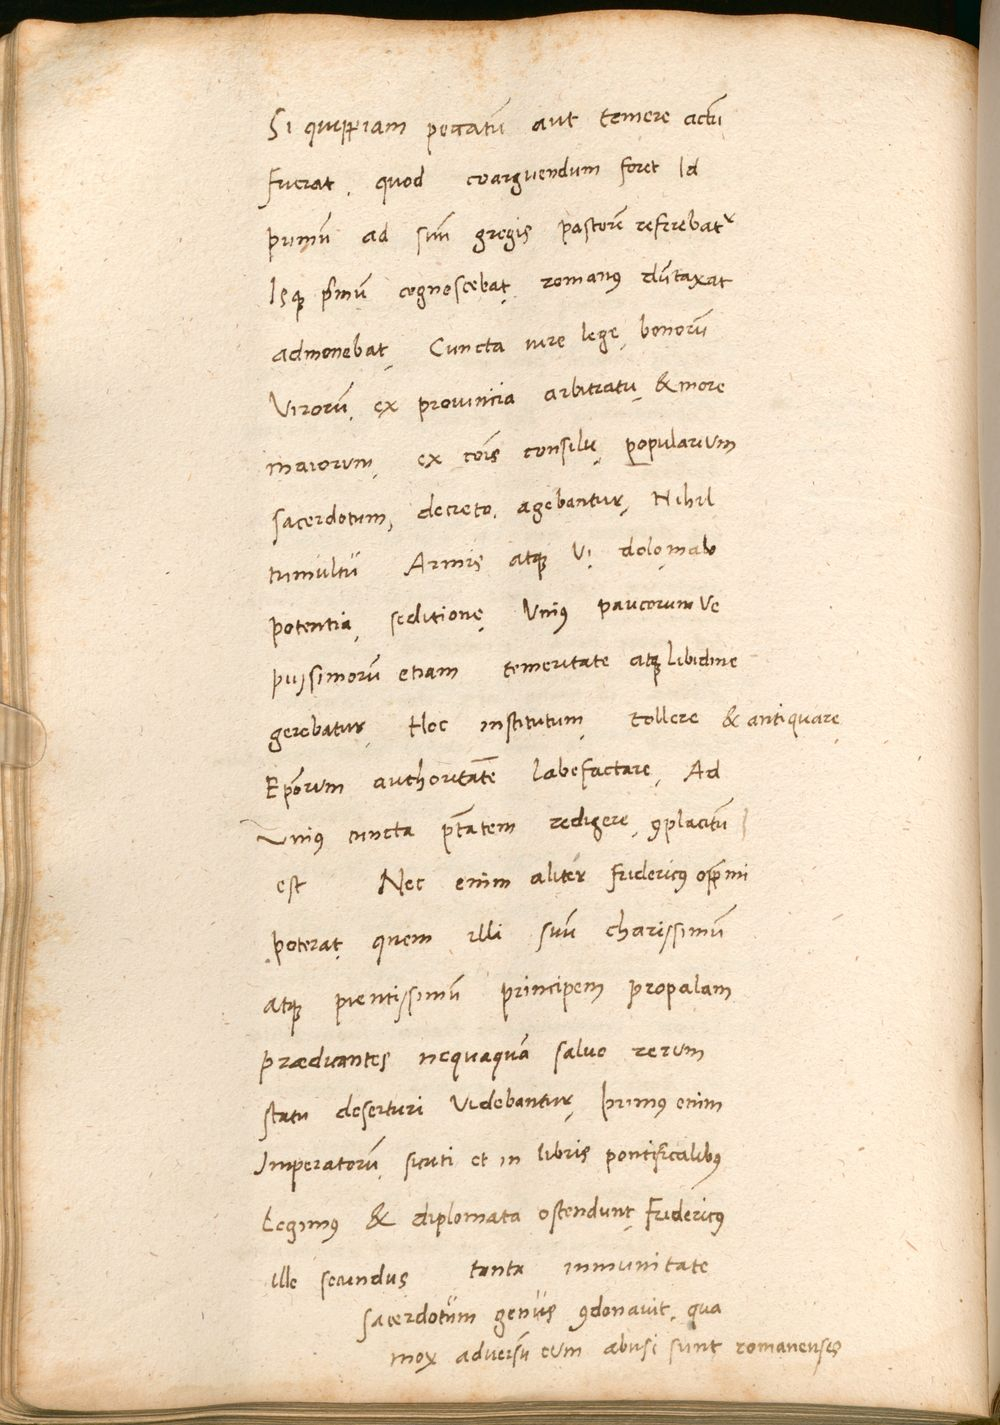 Si quippiam peccatū aut temere actū
fuerat, quod coarguendum foret Id
primū ad suū gregis pastorē referebatᷣ
Isq; p̄mū cognoscebat, romanꝰ dūtaxat
admonebat, Cuncta iure lege, bonorū
Virorū, ex provincia arbitratu, & more
maiorum, ex cōis consilii, popularium
sacerdotum, decreto, agebantur, Nihil
tumultū Armis atq; Vi, dolo, malo
potentia, seditione, Uniꝰ paucorum ve
piissimorū etiam temeritate atq; libidine
gerebatur, Hoc institutum, tollere & antiquare,
Ep̄orum authoritatē labefactare, Ad
Uniꝰ cuncta p̄tatem redigere, ꝯplacitū
est Nec enim aliter Fridericꝰ opp̄mi
poterat, quem illi suū charissimū
atq; pientissimū principem propalam
prædicantes nequaquā salvo rerum
statu deserturi Videbantur, primꝰ enim
Imperatorū, sicuti et in libris pontificalibꝰ
Legimꝰ & diplomata ostendunt, Fridericꝰ
ille secundus tanta inmunitate
sacerdotūm genūs ꝯdonavit, qua
mox adversū eum abusi sunt romanenses